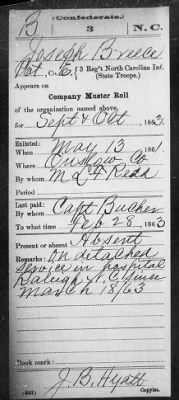 (Confederate.)
B 3 N.C.
Joseph Breece
Pvt, Co. E, 3 Reg't North Carolina Inf.
(State Troops.)
Appears on
Company Muster Roll
of the organization named above,
for Sept & Oct, 1863.
Enlisted:
When May 13, 1861
Where Onslow Co
By whom M L F Redd
Period
Last paid:
By whom Capt Bucher
To what time Feb 28, 1863
Present or absent Absent
Remarks: On detached
service in hospital
Raleigh N. C. since
March 18/63
Book mark:
J. B. Hyatt
(642) Copyist.